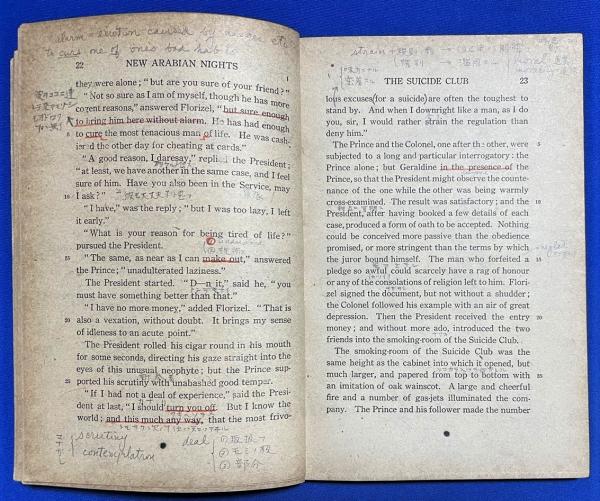 alarm = emotion caused by danger etc.
to cure one of one's bad habits
22 NEW ARABIAN NIGHTS
they were alone; "but are you sure of your friend?"
"Not so sure as I am of myself, though he has more
cogent reasons," answered Florizel, "but sure enough
to bring him here without alarm. He has had enough
5 to cure the most tenacious man of life. He was cash-
iered the other day for cheating at cards."
"A good reason, I daresay," replied the President;
"at least, we have another in the same case, and I feel
sure of him. Have you also been in the Service, may
10 I ask?"
"I have," was the reply; "but I was too lazy, I left
it early."
"What is your reason for being tired of life?"
pursued the President.
15 "The same, as near as I can make out," answered
the Prince; "unadulterated laziness."
The President started. "D—n it," said he, "you
must have something better than that."
"I have no more money," added Florizel. "That is
20 also a vexation, without doubt. It brings my sense
of idleness to an acute point."
The President rolled his cigar round in his mouth
for some seconds, directing his gaze straight into the
eyes of this unusual neophyte; but the Prince sup-
25 ported his scrutiny with unabashed good temper.
"If I had not a deal of experience," said the Presi-
dent at last, "I should turn you off. But I know the
world; and this much any way, that the most frivo-
scrutiny
contemplation
deal
THE SUICIDE CLUB 23
lous excuses (for a suicide) are often the toughest to
stand by. And when I downright like a man, as I do
you, sir, I would rather strain the regulation than
deny him."
The Prince and the Colonel, one after the other, were 5
subjected to a long and particular interrogatory: the
Prince alone; but Geraldine in the presence of the
Prince, so that the President might observe the counte-
nance of the one while the other was being warmly
cross-examined. The result was satisfactory; and the 10
President, after having booked a few details of each
case, produced a form of oath to be accepted. Nothing
could be conceived more passive than the obedience
promised, or more stringent than the terms by which
the juror bound himself. The man who forfeited a 15
pledge so awful could scarcely have a rag of honour
or any of the consolations of religion left to him. Flori-
zel signed the document, but not without a shudder;
the Colonel followed his example with an air of great
depression. Then the President received the entry 20
money; and without more ado, introduced the two
friends into the smoking-room of the Suicide Club.
The smoking-room of the Suicide Club was the
same height as the cabinet into which it opened, but
much larger, and papered from top to bottom with 25
an imitation of oak wainscot. A large and cheerful
fire and a number of gas-jets illuminated the com-
pany. The Prince and his follower made the number